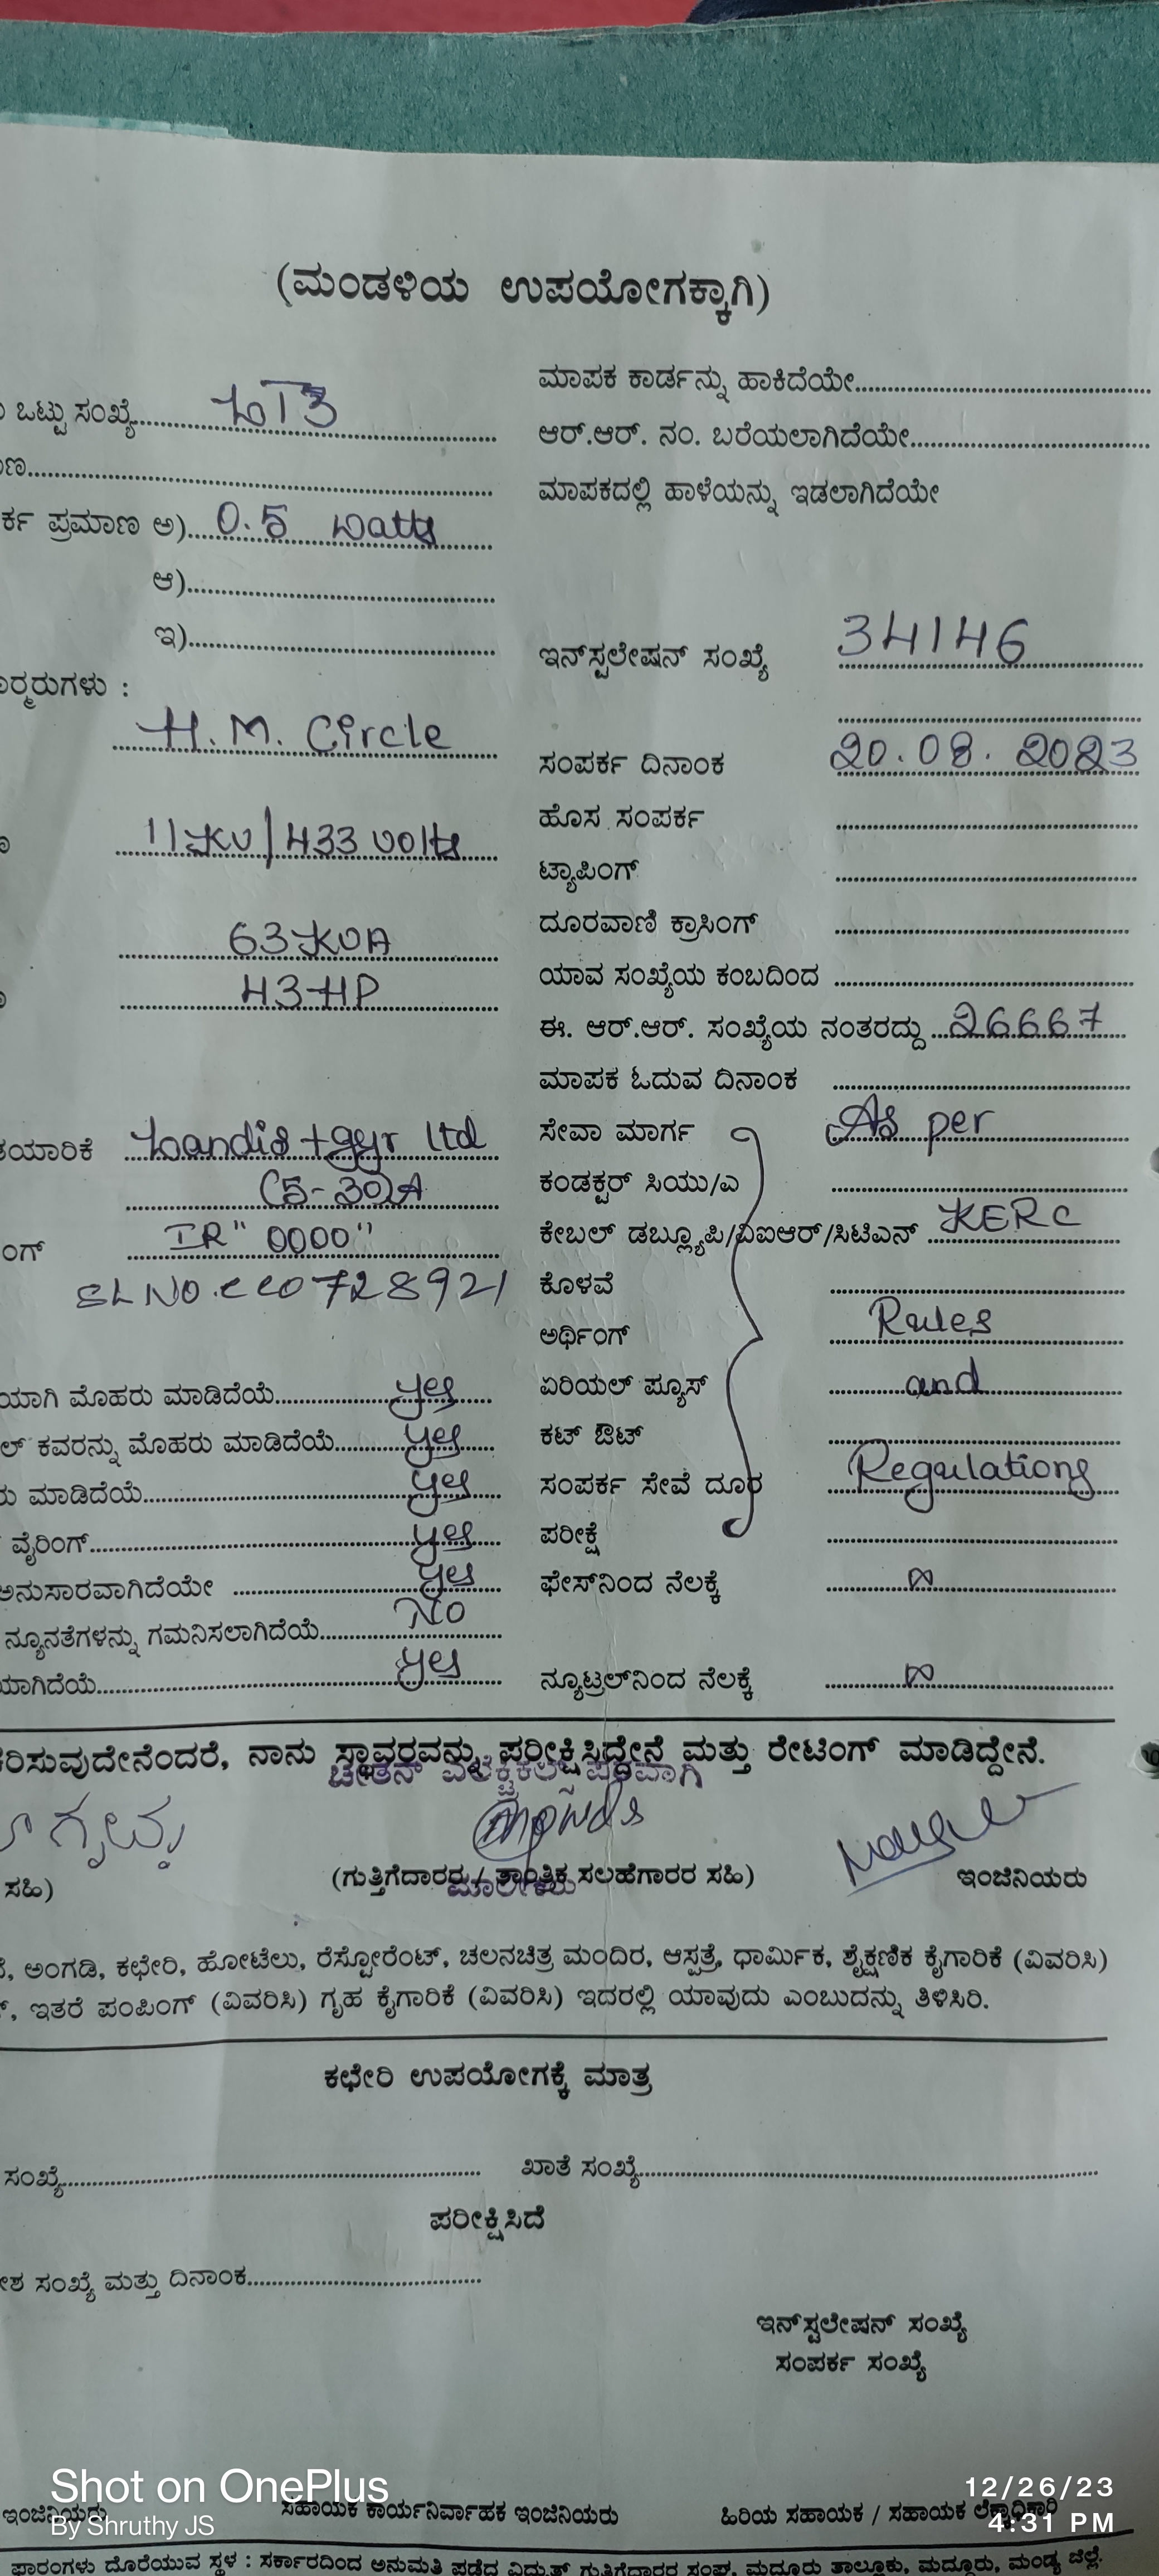 (ಮಂಡಳಿಯ ಉಪಯೋಗಕ್ಕಾಗಿ)
ಒಟ್ಟು ಸಂಖ್ಯೆ LT3
ರ್ಕ ಪ್ರಮಾಣ ಅ) 0.5 watts
ಆ)
ಇ)
H.M. Circle
11KV/433 volts
63KVA
43HP
ತಯಾರಿಕೆ Landis+gyr ltd
(5-30)A
ಂಗ್ IR "0000"
SLNO.cc0728921
ಯಾಗಿ ಮೊಹರು ಮಾಡಿದೆಯೆ yes
ಲ್ ಕವರನ್ನು ಮೊಹರು ಮಾಡಿದೆಯೆ yes
ರು ಮಾಡಿದೆಯೆ yes
ವೈರಿಂಗ್ yes
ಅನುಸಾರವಾಗಿದೆಯೇ yes
ನ್ಯೂನತೆಗಳನ್ನು ಗಮನಿಸಲಾಗಿದೆಯೆ No
ಯಾಗಿದೆಯೆ yes
ಮಾಪಕ ಕಾರ್ಡನ್ನು ಹಾಕಿದೆಯೇ
ಆರ್.ಆರ್. ನಂ. ಬರೆಯಲಾಗಿದೆಯೇ
ಮಾಪಕದಲ್ಲಿ ಹಾಳೆಯನ್ನು ಇಡಲಾಗಿದೆಯೇ
ಇನ್‌ಸ್ಟಲೇಷನ್ ಸಂಖ್ಯೆ 34146
ಸಂಪರ್ಕ ದಿನಾಂಕ 20.08.2023
ಹೊಸ ಸಂಪರ್ಕ
ಟ್ಯಾಪಿಂಗ್
ದೂರವಾಣಿ ಕ್ರಾಸಿಂಗ್
ಯಾವ ಸಂಖ್ಯೆಯ ಕಂಬದಿಂದ
ಈ. ಆರ್.ಆರ್. ಸಂಖ್ಯೆಯ ನಂತರದ್ದು 26667
ಮಾಪಕ ಓದುವ ದಿನಾಂಕ
ಸೇವಾ ಮಾರ್ಗ As per
ಕಂಡಕ್ಟರ್ ಸಿಯು/ಎ
ಕೇಬಲ್ ಡಬ್ಲ್ಯೂಪಿ/ವಿಐಆರ್/ಸಿಟಿಎನ್ KERC
ಕೊಳವೆ
ಅರ್ಥಿಂಗ್ Rules
ಏರಿಯಲ್ ಪ್ಯೂಸ್ and
ಕಟ್ ಔಟ್
ಸಂಪರ್ಕ ಸೇವೆ ದೂರ Regulations
ಪರೀಕ್ಷೆ
ಫೇಸ್‌ನಿಂದ ನೆಲಕ್ಕೆ
ನ್ಯೂಟ್ರಲ್‌ನಿಂದ ನೆಲಕ್ಕೆ
ರಿಸುವುದೇನೆಂದರೆ, ನಾನು ಸ್ಥಾವರವನ್ನು ಪರೀಕ್ಷಿಸಿದ್ದೇನೆ ಮತ್ತು ರೇಟಿಂಗ್ ಮಾಡಿದ್ದೇನೆ.
ಸಹಿ) (ಗುತ್ತಿಗೆದಾರರ / ತಾಂತ್ರಿಕ ಸಲಹೆಗಾರರ ಸಹಿ) ಇಂಜಿನಿಯರು
ಅಂಗಡಿ, ಕಛೇರಿ, ಹೋಟೆಲು, ರೆಸ್ಟೋರೆಂಟ್, ಚಲನಚಿತ್ರ ಮಂದಿರ, ಆಸ್ಪತ್ರೆ, ಧಾರ್ಮಿಕ, ಶೈಕ್ಷಣಿಕ ಕೈಗಾರಿಕೆ (ವಿವರಿಸಿ)
ಇತರೆ ಪಂಪಿಂಗ್ (ವಿವರಿಸಿ) ಗೃಹ ಕೈಗಾರಿಕೆ (ವಿವರಿಸಿ) ಇದರಲ್ಲಿ ಯಾವುದು ಎಂಬುದನ್ನು ತಿಳಿಸಿರಿ.
ಕಛೇರಿ ಉಪಯೋಗಕ್ಕೆ ಮಾತ್ರ
ಸಂಖ್ಯೆ ಖಾತೆ ಸಂಖ್ಯೆ
ಪರೀಕ್ಷಿಸಿದೆ
ಶ ಸಂಖ್ಯೆ ಮತ್ತು ದಿನಾಂಕ
ಇನ್‌ಸ್ಟಲೇಷನ್ ಸಂಖ್ಯೆ
ಸಂಪರ್ಕ ಸಂಖ್ಯೆ
ಇಂಜಿನಿಯರು ಸಹಾಯಕ ಕಾರ್ಯನಿರ್ವಾಹಕ ಇಂಜಿನಿಯರು ಹಿರಿಯ ಸಹಾಯಕ / ಸಹಾಯಕ ಲೆಕ್ಕಾಧಿಕಾರಿ
ಫಾರಂಗಳು ದೊರೆಯುವ ಸ್ಥಳ : ಸರ್ಕಾರದಿಂದ ಅನುಮತಿ ಪಡೆದ ವಿದ್ಯುತ್ ಗುತ್ತಿಗೆದಾರರ ಸಂಘ, ಮದ್ದೂರು ತಾಲ್ಲೂಕು, ಮದ್ದೂರು, ಮಂಡ್ಯ ಜಿಲ್ಲೆ.
Shot on OnePlus
By Shruthy JS
12/26/23
4:31 PM